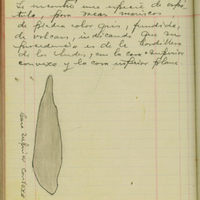 Se encontró una especie de espá-
tula, para sacar mariscos,
de piedra color gris, fundida,
de volcan, indicando que su
procedencia es de la Cordillera
de los Andes; con la cara superior
convexa y la cara inferior plana.
Cara superior convexa